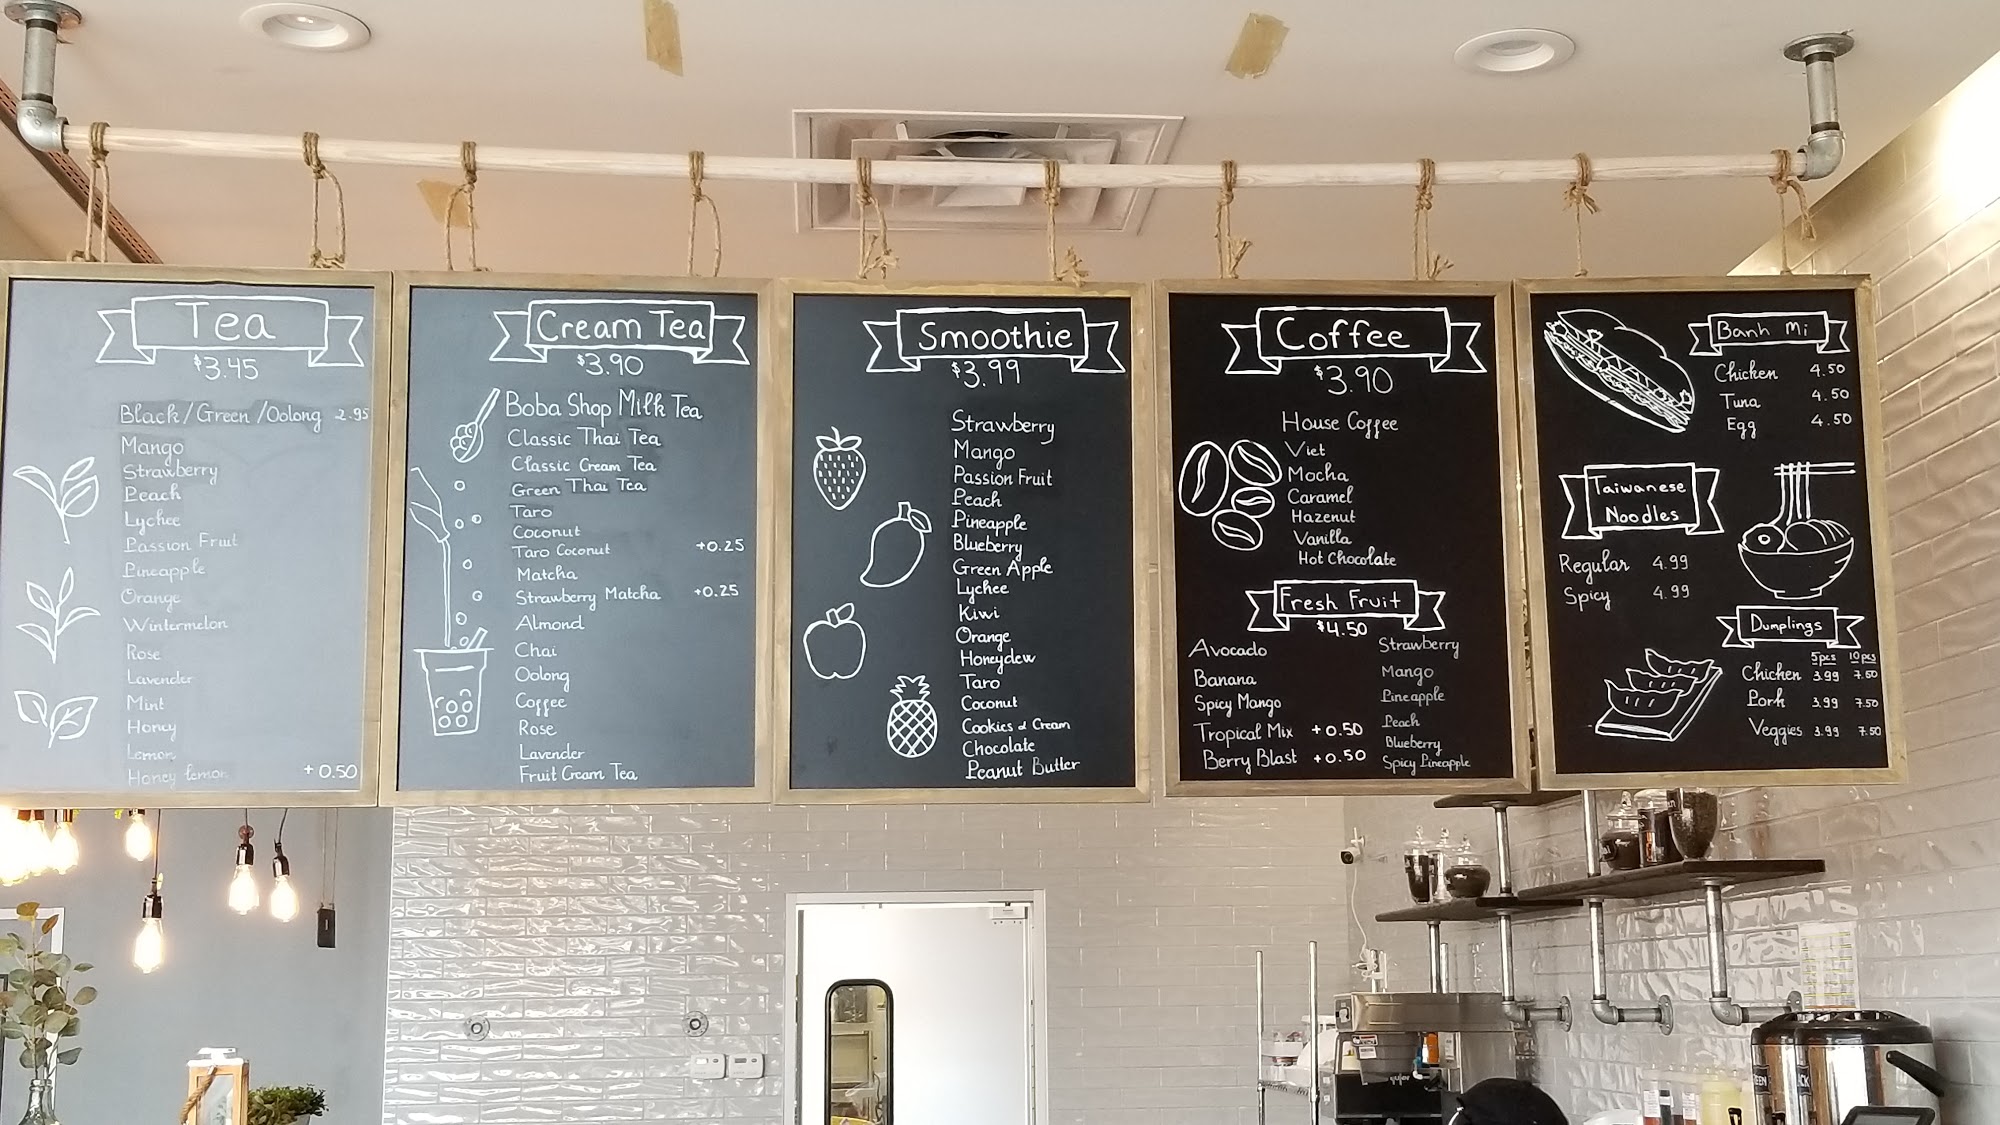 Tea
$3.45
Black/Green/Oolong 2.95
Mango
Strawberry
Peach
Lychee
Passion Fruit
Pineapple
Orange
Wintermelon
Rose
Lavender
Mint
Honey
Lemon
Honey lemon +0.50
Cream Tea
$3.90
Boba Shop Milk Tea
Classic Thai Tea
Classic Cream Tea
Green Thai Tea
Taro
Coconut
Taro Coconut +0.25
Matcha
Strawberry Matcha +0.25
Almond
Chai
Oolong
Coffee
Rose
Lavender
Fruit Cream Tea
Smoothie
$3.99
Strawberry
Mango
Passion Fruit
Peach
Pineapple
Blueberry
Green Apple
Lychee
Kiwi
Orange
Honeydew
Taro
Coconut
Cookies & Cream
Chocolate
Peanut Butter
Coffee
$3.90
House Coffee
Viet
Mocha
Caramel
Hazenut
Vanilla
Hot Chocolate
Fresh Fruit
$4.50
Avocado
Banana
Spicy Mango
Tropical Mix +0.50
Berry Blast +0.50
Strawberry
Mango
Pineapple
Peach
Blueberry
Spicy Pineapple
Banh Mi
Chicken 4.50
Tuna 4.50
Egg 4.50
Taiwanese
Noodles
Regular 4.99
Spicy 4.99
Dumplings
5pcs 10pcs
Chicken 3.99 7.50
Pork 3.99 7.50
Veggies 3.99 7.50